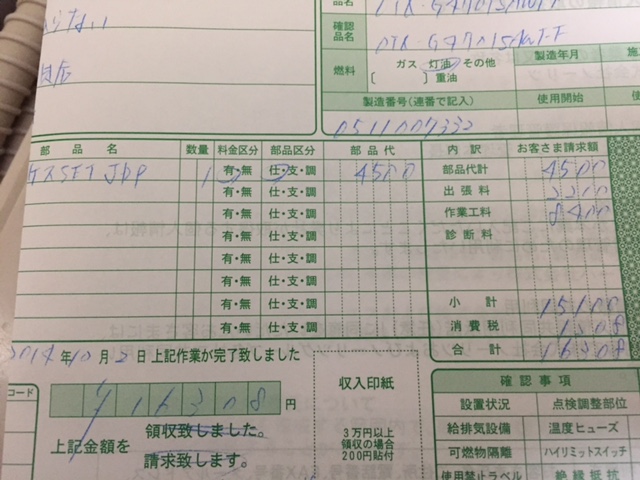 品名
確認品名 OTX-G4701SAWFF
燃料 ガス 灯油 その他
[ ] 重油
製造年月
製造番号(連番で記入) 使用開始
0511007332
部品名 数量 料金区分 部品区分 部品代 内訳 お客さま請求額
1 有・無 仕・支・調 4500 部品代計 4500
有・無 仕・支・調 出張料 2200
有・無 仕・支・調 作業工料 8400
有・無 仕・支・調 診断料
有・無 仕・支・調
有・無 仕・支・調
有・無 仕・支・調 小計 15100
有・無 仕・支・調 消費税 1208
合計 16308
年10月2日 上記作業が完了致しました
コード
¥16308円
上記金額を 領収致しました。
請求致します。
収入印紙
3万円以上
領収の場合
200円貼付
確認事項
設置状況 点検調整部位
給排気設備 温度ヒューズ
可燃物隔離 ハイリミットスイッチ
使用禁止ラベル 絶縁抵抗